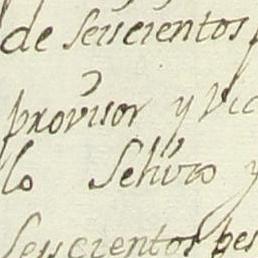 de seiscientos
provisor y Vic
lo Sehizo y
seiscientos pes